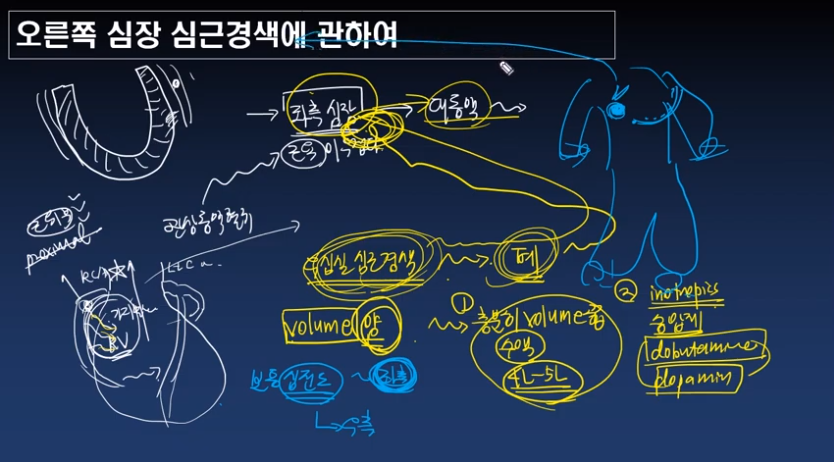 오른쪽 심장 심근경색에 관하여
좌측 심장
대동맥
근육이 두껍다
관상동맥
근위부
proximal
RCA
LCA
RV
심실 심근경색
폐
volume 양
① 충분히 volume
수액
4L-5L
② inotropics
승압제
dobutamine
dopamin
보통 심전도 ~ 좌측
우측